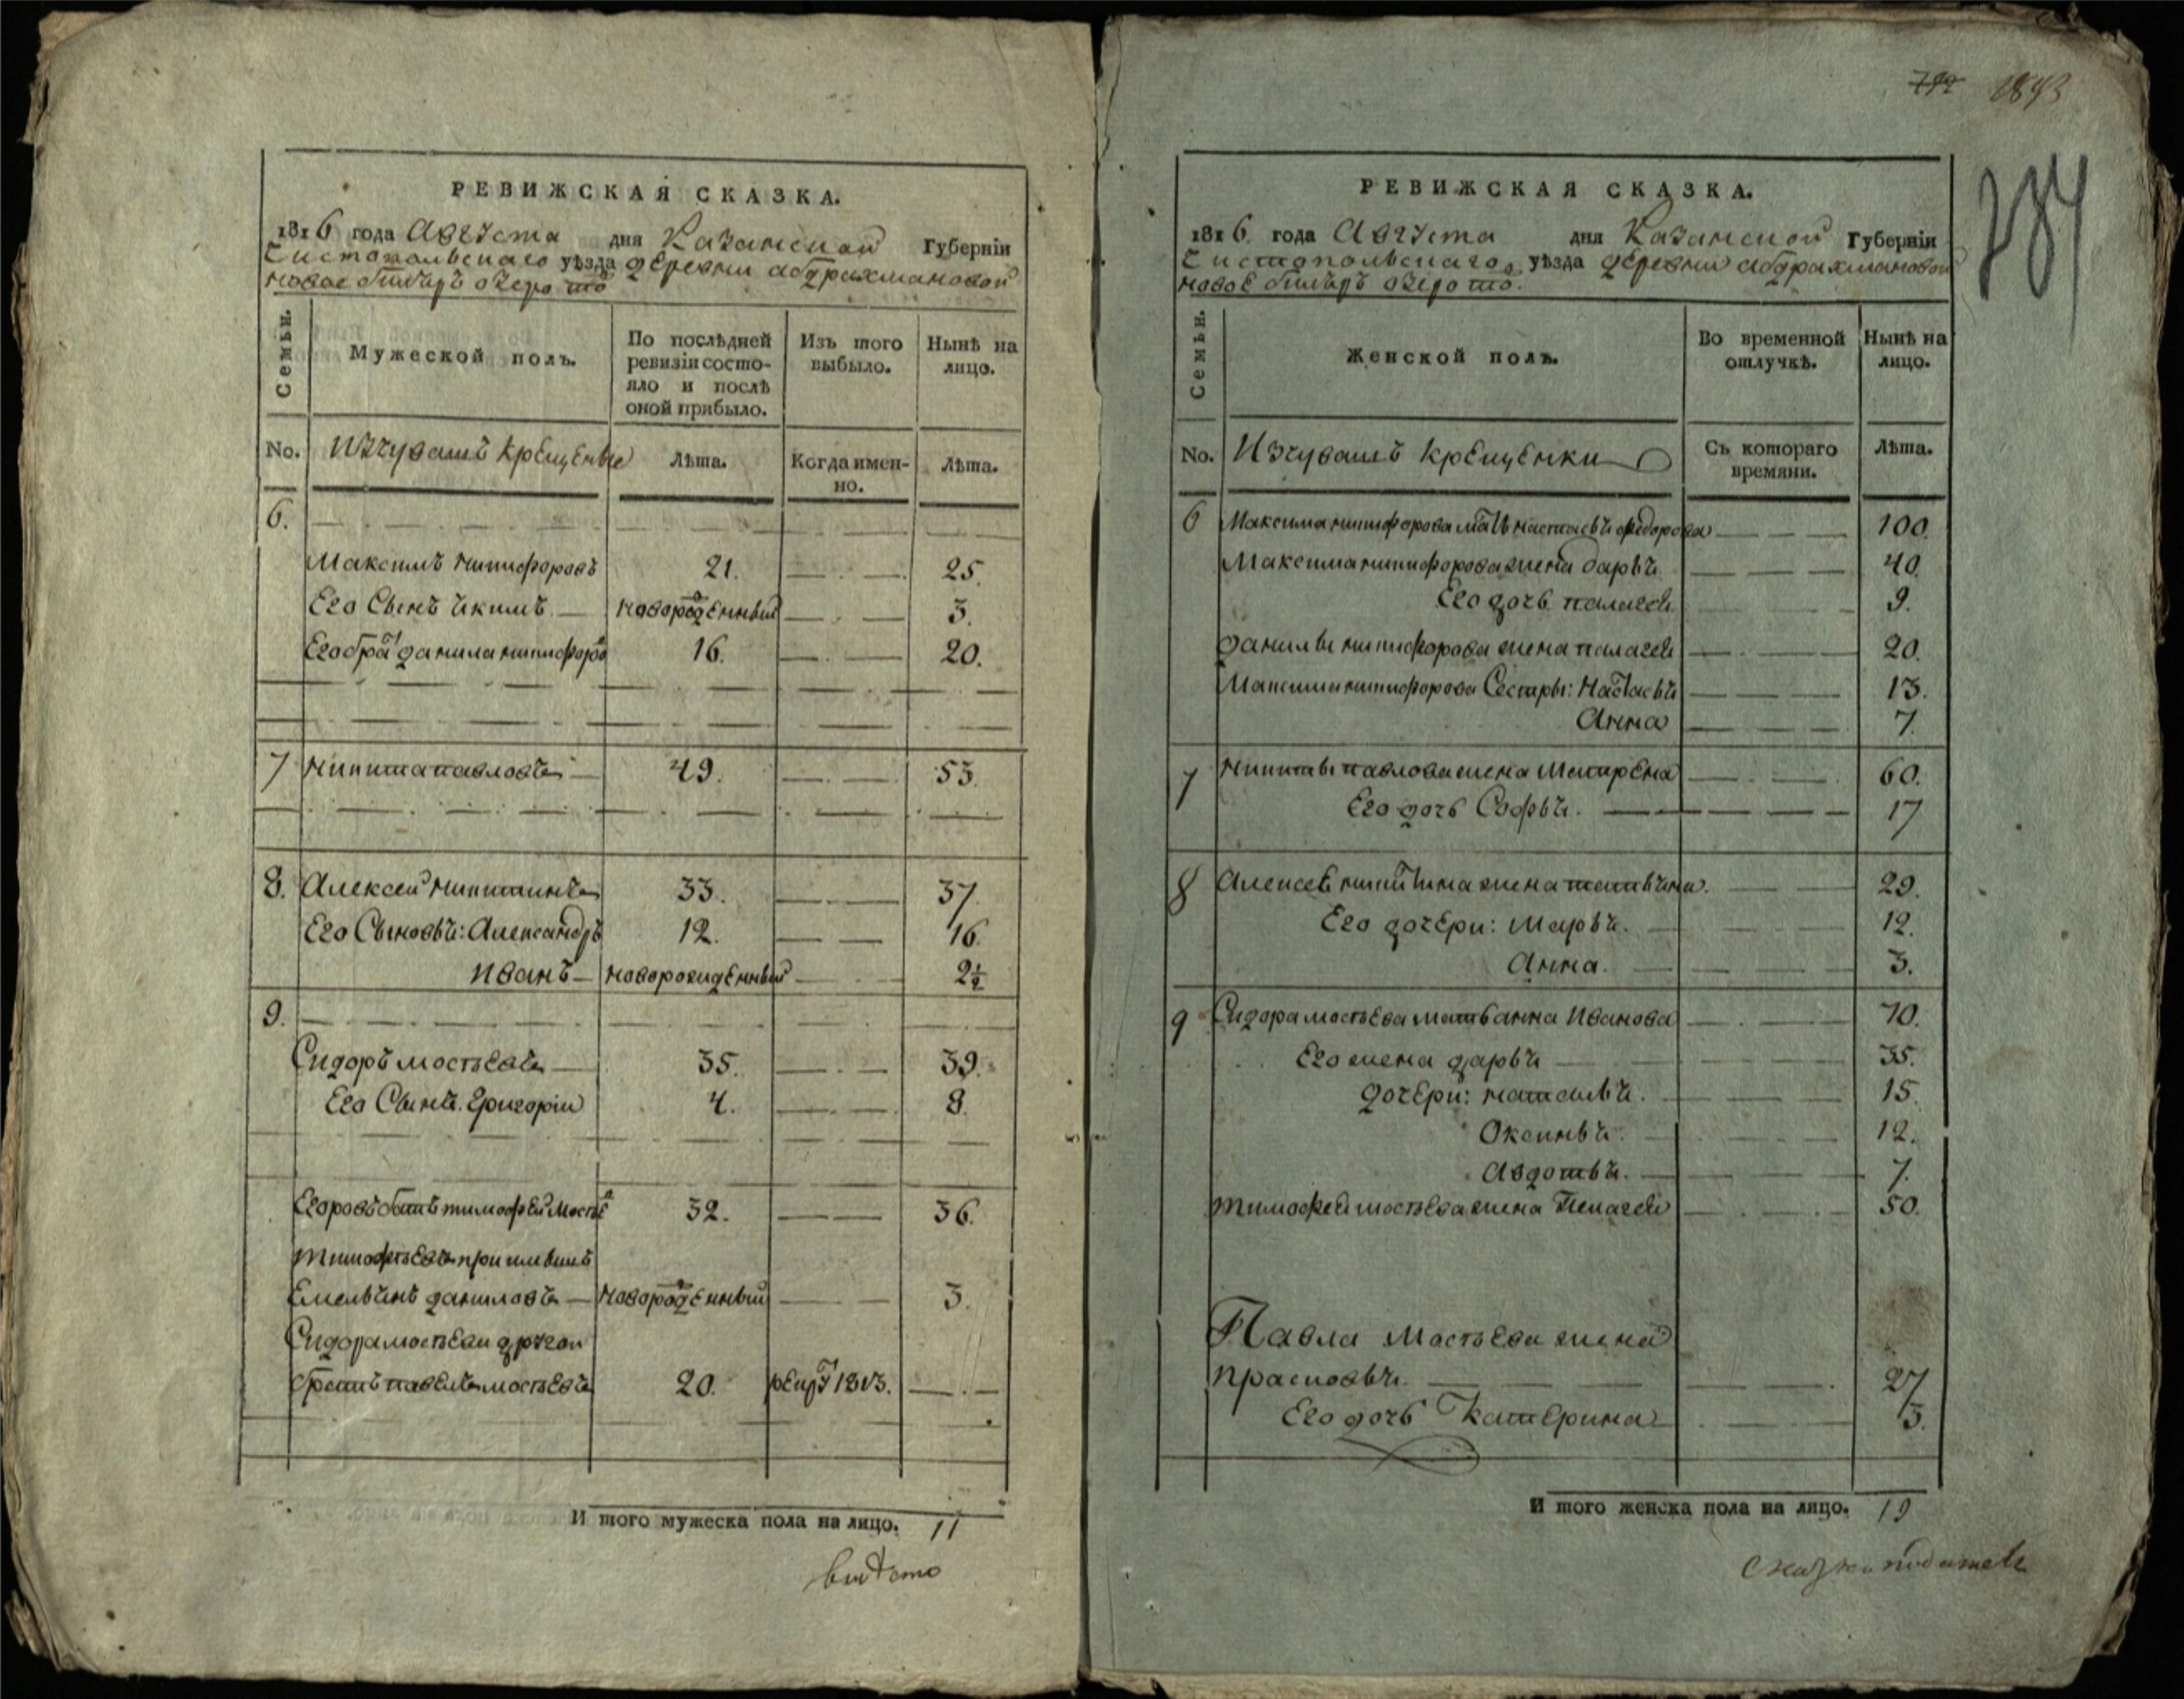 РЕВИЖСКАЯ СКАЗКА.
1816 года Августа дня Казанской Губерніи
Чистопольскаго уѣзда деревни абдрахмановой
новое озеро тo
Семьи.
Мужеской полъ.
По послѣдней ревизіи состо-
яло и послѣ
оной прибыло.
Изъ того
выбыло.
Нынѣ на
лицо.
No. Изчувашъ крещеные Лѣта. Когда имен-
но. Лѣта.
6.
Максимъ никифоровъ 21. 25.
Его Сынъ якимъ новорожденный 3.
Его братъ данила никифоров 16. 20.
7 никита павловъ 49. 53.
8. Алексей никитинъ 33. 37.
Его Сыновья: Александръ 12. 16.
иванъ новорожденный 2½
9.
Сидоръ мостѣевъ 35. 39.
Его Сынъ григорій 4. 8.
тимофей Мосѣе 32. 36.
тимофѣевъ
Емельянъ даниловъ новорожденный 3.
Сидора мосѣева другой
братъ павелъ мосѣевъ 20. рекрут 1813.
И того мужеска пола на лицо. 11
вмѣсто
792 1843
284
РЕВИЖСКАЯ СКАЗКА.
1816. года Августа дня Казанской Губерніи
Чистопольскаго уѣзда деревни абдрахмановой
новое озеро то.
Семьи.
Женской полъ.
Во временной
отлучкѣ.
Нынѣ на
лицо.
No. Изчувашъ крещенки Съ котораго
времяни. Лѣта.
6 Максима никифорова мать настасья федорова 100.
Максима никифорова жена дарья 40.
Его дочь палагея 9.
данилы никифорова жена палагея 20.
Максима никифорова Сестры: Настасья 13.
Анна 7.
7 никиты павлова жена Матрена 60.
Его дочь Софья. 17
8 Алексея никитина жена татьяна. 29.
Его дочери: Марья. 12.
Анна. 3.
9 Сидора мосѣева мать анна Иванова 70.
Его жена дарья 35.
дочери: наталья. 15.
Оксинья. 12.
Авдотья. 7.
тимофея мосѣева жена Пелагея 50.
Павла Мосѣева жена
прасковья. 27
Его дочь Катерина 3.
И того женска пола на лицо. 19
сказку